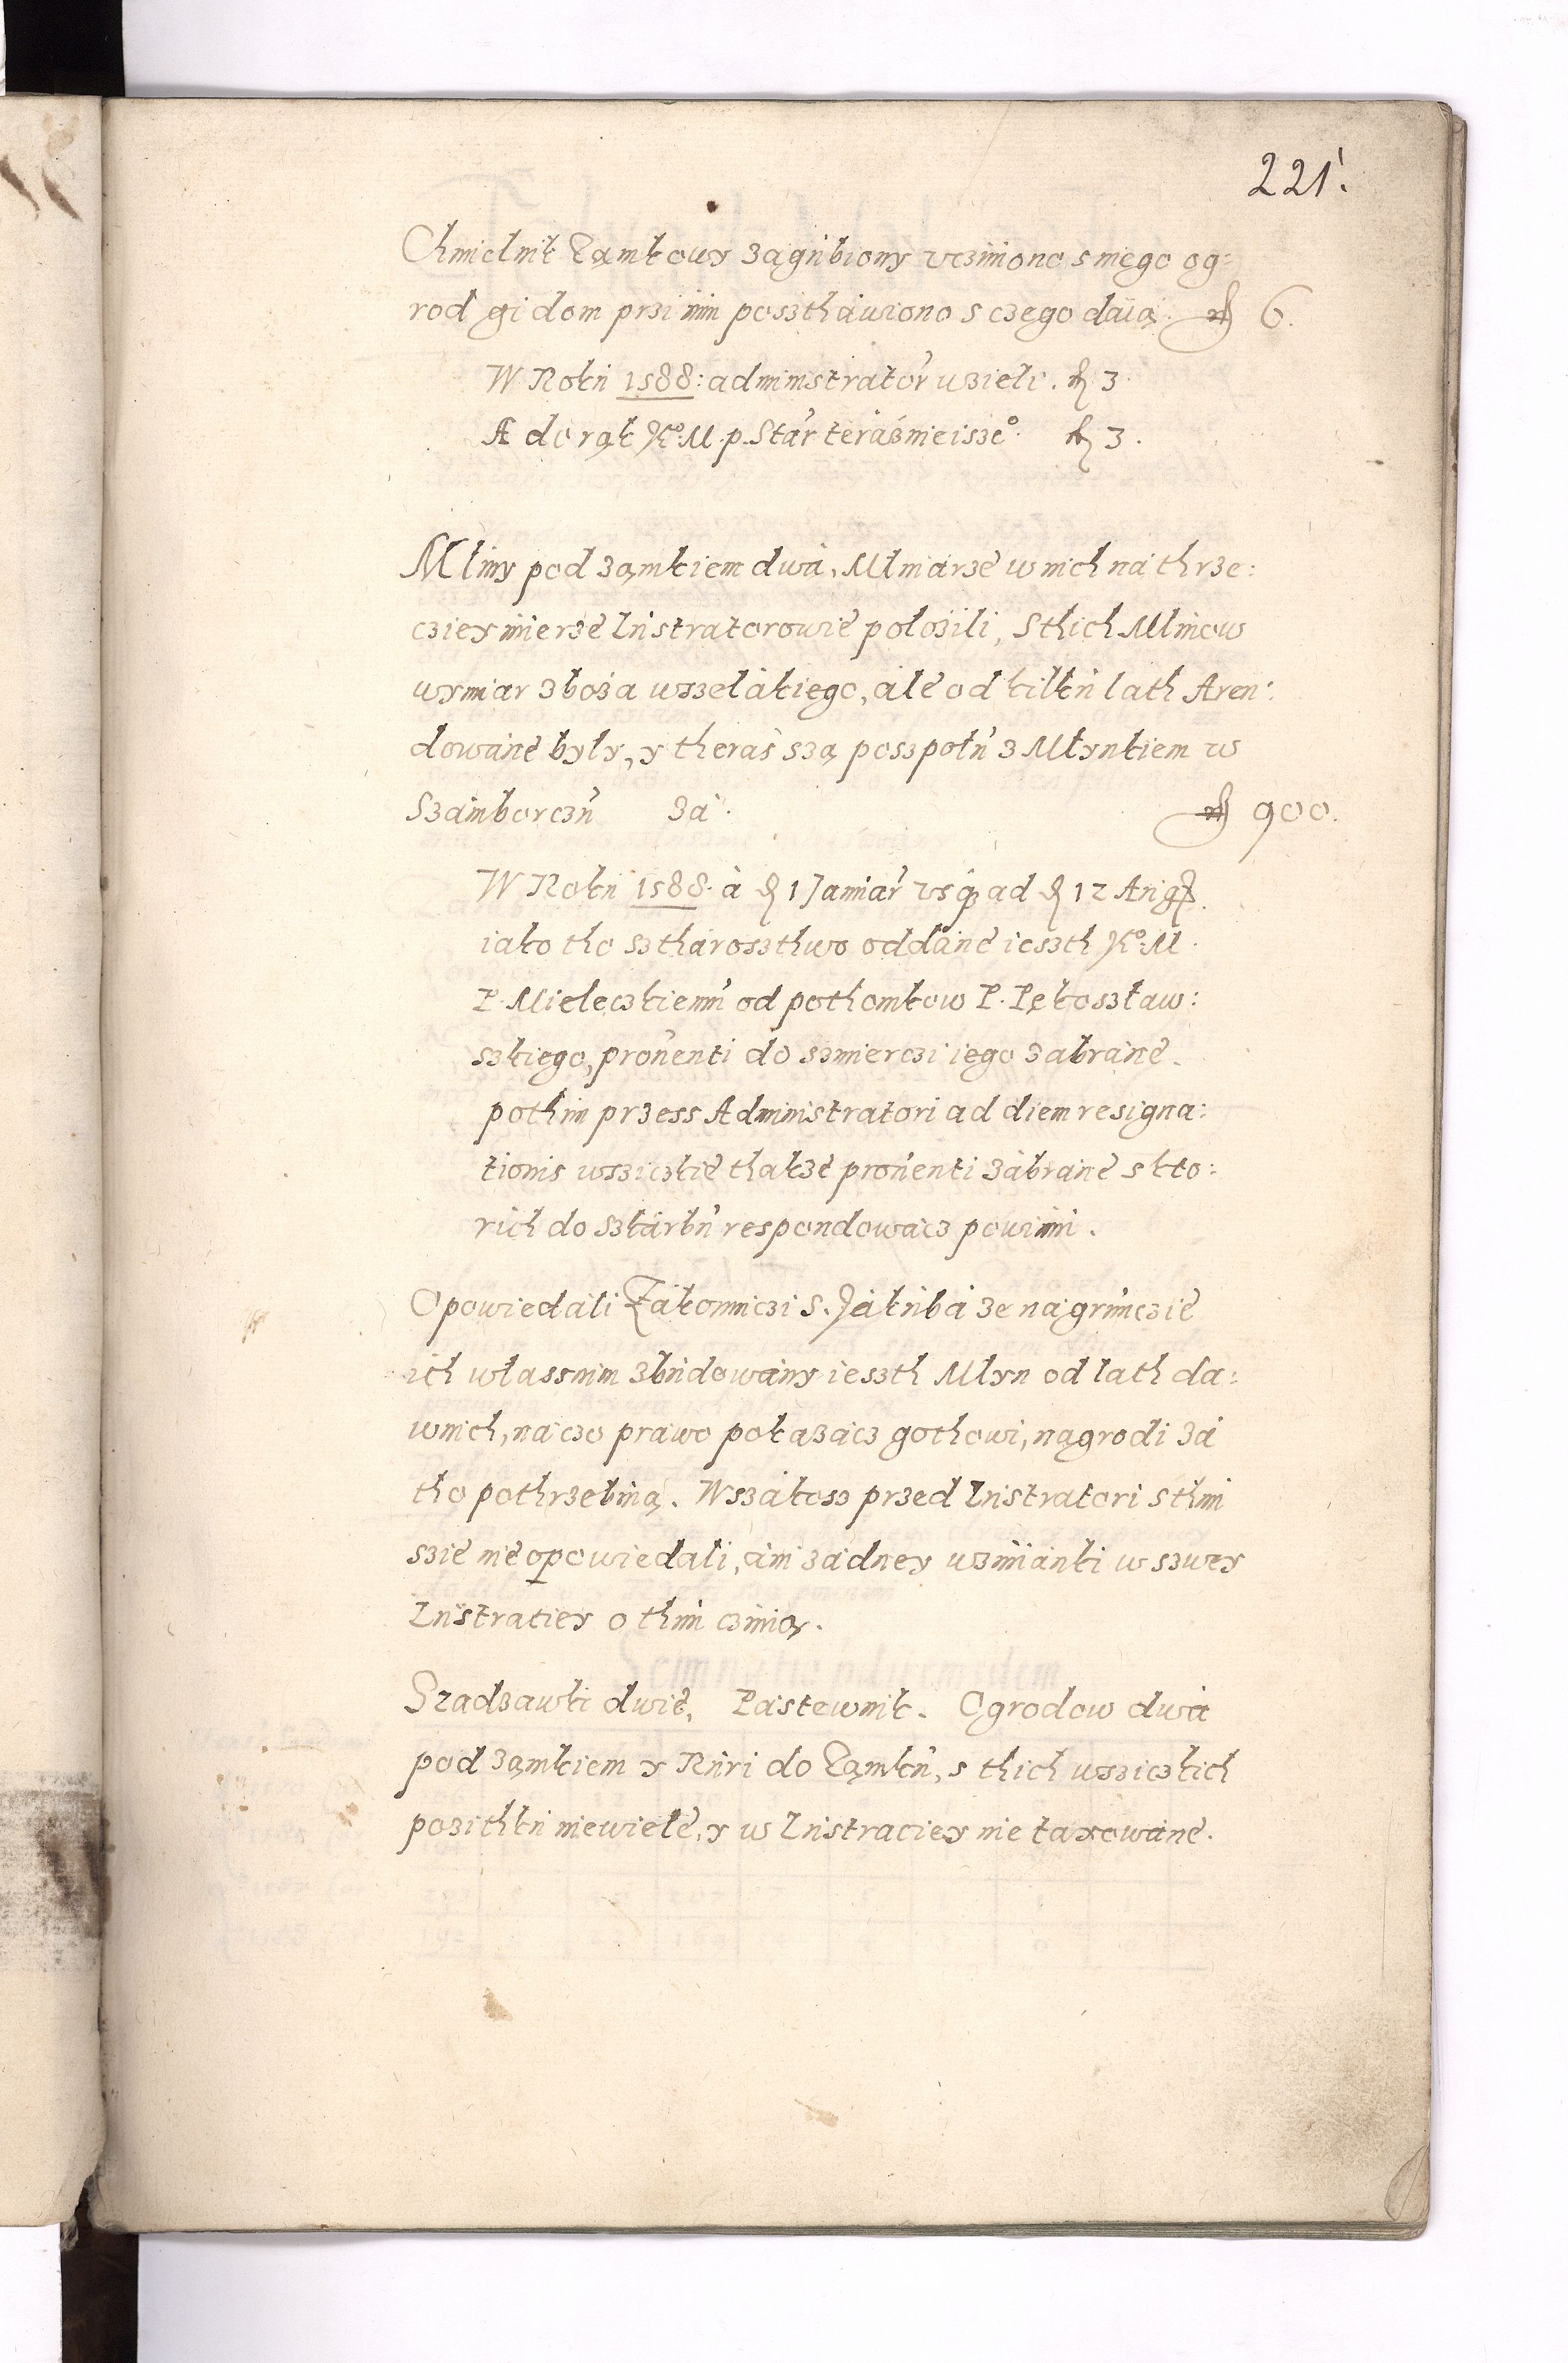 221.
Chmielnik Zamkowy zagubiony vcziniono s niego og:
rod gi dom przi nim poszthawiono s czego daią fl 6.
W Roku 1588: administrator wzieli. fl 3
A do rąk K° M. p. Star teraznieisze° fl 3.
Mliny pod zamkiem dwa, Mlniarze w nich na thrze:
cziey mierze Lustratorowie polozili, S thich Mlinow
wymiar zboza wszelakiego, ale od kilku lath Aren:
dowane były, y theraś szą poszpołu z Młynkiem w
Szamborczu za fl 900.
W Roku 1588. a d 1 Januar vsq ad d 12 Aug
iako tho sztharoszthwo oddane ieszth K° M.
P. Mieleczkiemu od pothomkow P. Pękoszław:
szkiego, prouenti do szmierczi iego zabrane.
pothim przess Administratori ad diem resigna:
tionis wsziczkie thakze prouenti zabrane s kto:
rich do szkarbu respondowacz powinni.
Opowiedali Zakonniczi S. Jakuba ze na grunczie
ich własnnim zbudowany ieszth Młyn od lath da:
wnich, na czo prawo pokazacz gothowi, nagrodi za
tho pothrzebuią. Wszakosz przed Lustratori s thim
szie nie opowiedali, ani zadney wzmianki w szwey
Lustraciey o thim czinią.
Szadzawki dwie, Pastewnik. Ogrodow dwa
pod zamkiem y Ruri do Zamku, s thich wsziczkich
pozithku niewiele, y w Lustraciey nie taxowane.